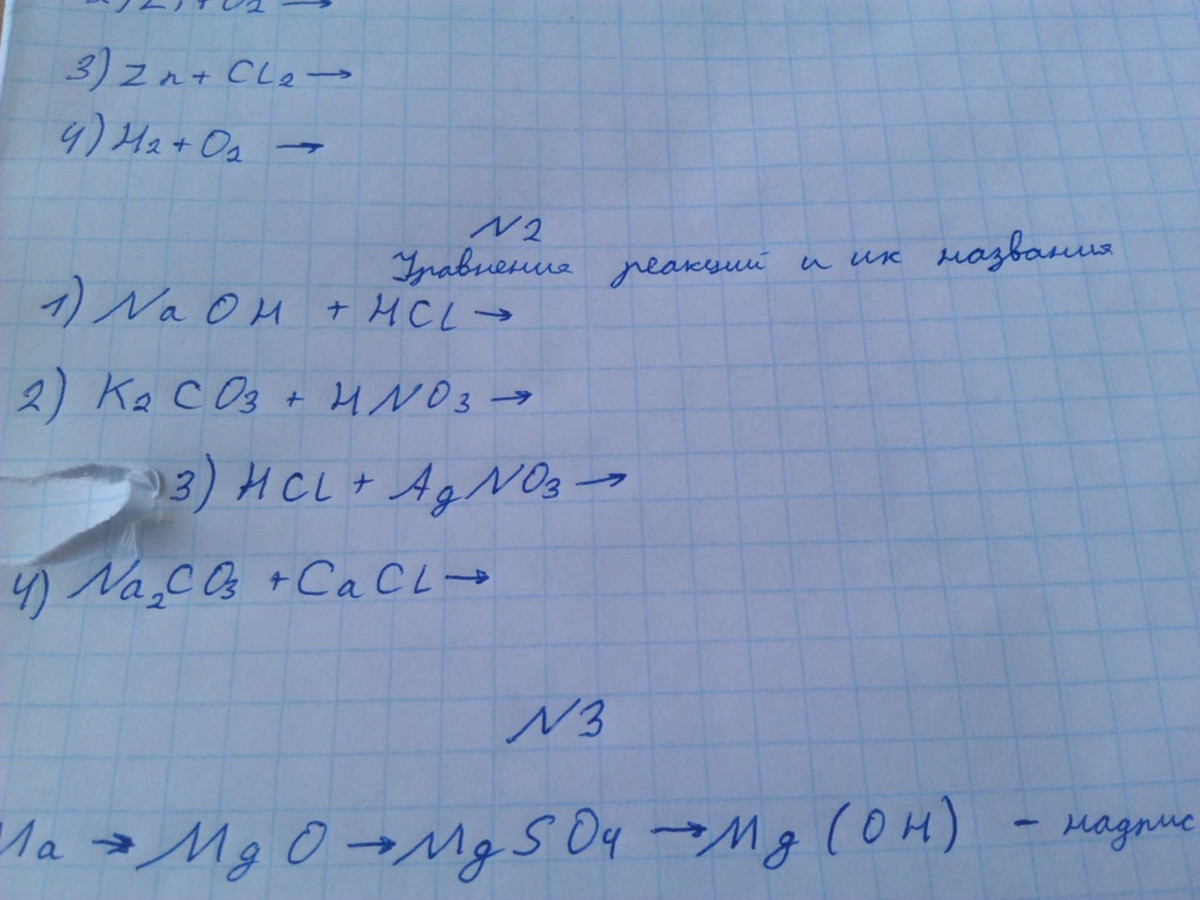 3) Zn + Cl₂ →
4) H₂ + O₂ →
N2
Уравнения реакций и их названия
1) NaOH + HCl →
2) K₂CO₃ + HNO₃ →
3) HCl + AgNO₃ →
4) Na₂CO₃ + CaCl →
N3
→ MgO → MgSO₄ → Mg(OH) - надпис